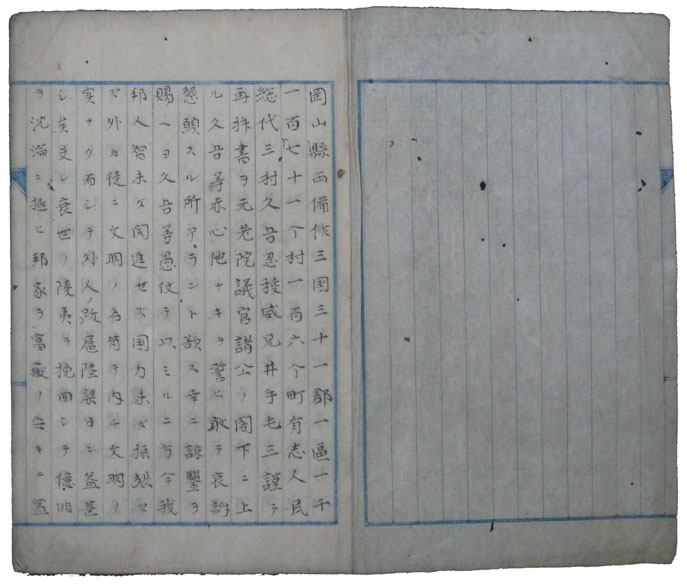 岡山縣両備作三国三十一郡一區一千
一百七十一个村一百六个町有志人民
総代三村久吾忍稜威兄井手毛三謹テ
再拝書ヲ元老院議官諸公ノ閣下ニ上
ル久吾等赤心他ナキヲ誓ヒ敢テ哀訴
懇願スル所アラント欲ス幸ニ諒鑒ヲ
賜ヘヨ久吾等愚伏テ以ミルニ方今我
邦人智未ダ開進セズ国力未ダ振起セ
ズ外ハ徒ニ文明ノ名有テ内ニ文明ノ
実ナク而シテ外人ノ跋扈陸梁日ニ益甚
シ矣夫レ衰世ノ陵夷ヲ挽回シテ億兆
ヲ沈淪ニ拯ヒ邦家ヲ富嶽ノ安キニ置